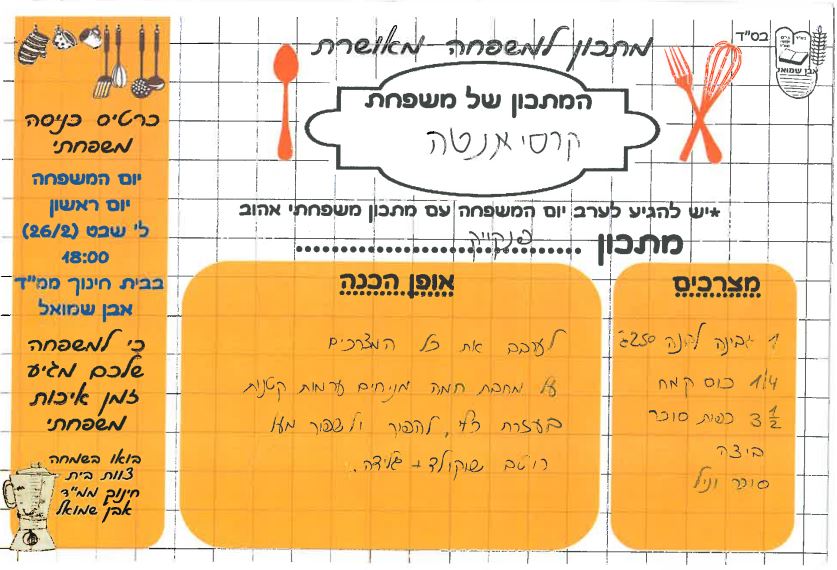 בס"ד
אבן שמואל
מתכון למשפחה מאושרת
המתכון של משפחת
קרסיאנטה
*יש להגיע לערב יום המשפחה עם מתכון משפחתי אהוב
מתכון ..... פנקייק .....
מצרכים
1 גבינה לבנה 250ג
1/4 כוס קמח
3 1/2 כפות סוכר
ביצה
סוכר וניל
אופן הכנה
לערבב את כל המצרכים
על מחבת חמה מניחים ערמות קטנות
בעזרת כף, להפוך ולשפוך מעל
רוטב שוקולד + גלידה.
כרטיס כניסה
משפחתי
יום המשפחה
יום ראשון
ל' שבט (26/2)
18:00
בבית חינוך ממ"ד
אבן שמואל
כי למשפחה
שלכם מגיע
זמן איכות
משפחתי
בואו בשמחה
צוות בית
חינוך ממ"ד
אבן שמואל